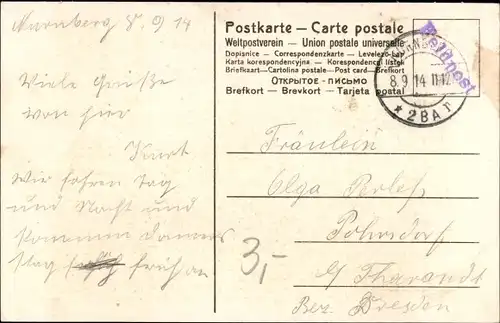 Nürnberg 8.9.14
Viele Grüße
von hier
Kurt
Wir fahren Tag
und Nacht und
kommen Donners
stag früh an
Postkarte – Carte postale
Weltpostverein – Union postale universelle
Dopisnice – Correspondenzkarte – Levelező-Lap
Karta korespondencyjna – Korespondenčni listek
Briefkaart – Cartolina postale – Post card – Brefkort
ОТКРЫТОЕ – ПИСЬМО
Brefkort – Brevkort – Tarjeta postal
Feldpost
8.9.14 11-12
* 2BA
Fräulein
Olga
Pohrsdorf
b/ Tharandt
Bez. Dresden
3,-